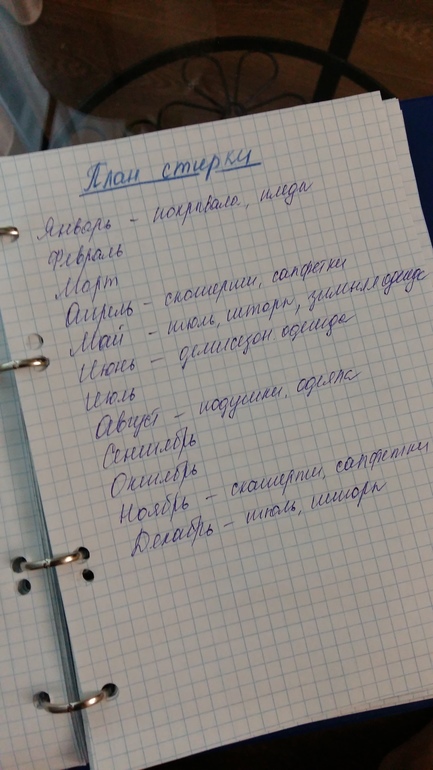 План стирки
Январь - покрывала, пледы
Февраль
Март
Апрель - скатерти, салфетки
Май - тюль, шторы, зимняя одежда
Июнь - демисезон одежда
Июль
Август - подушки, одеяла
Сентябрь
Октябрь
Ноябрь - скатерти, салфетки
Декабрь - тюль, шторы